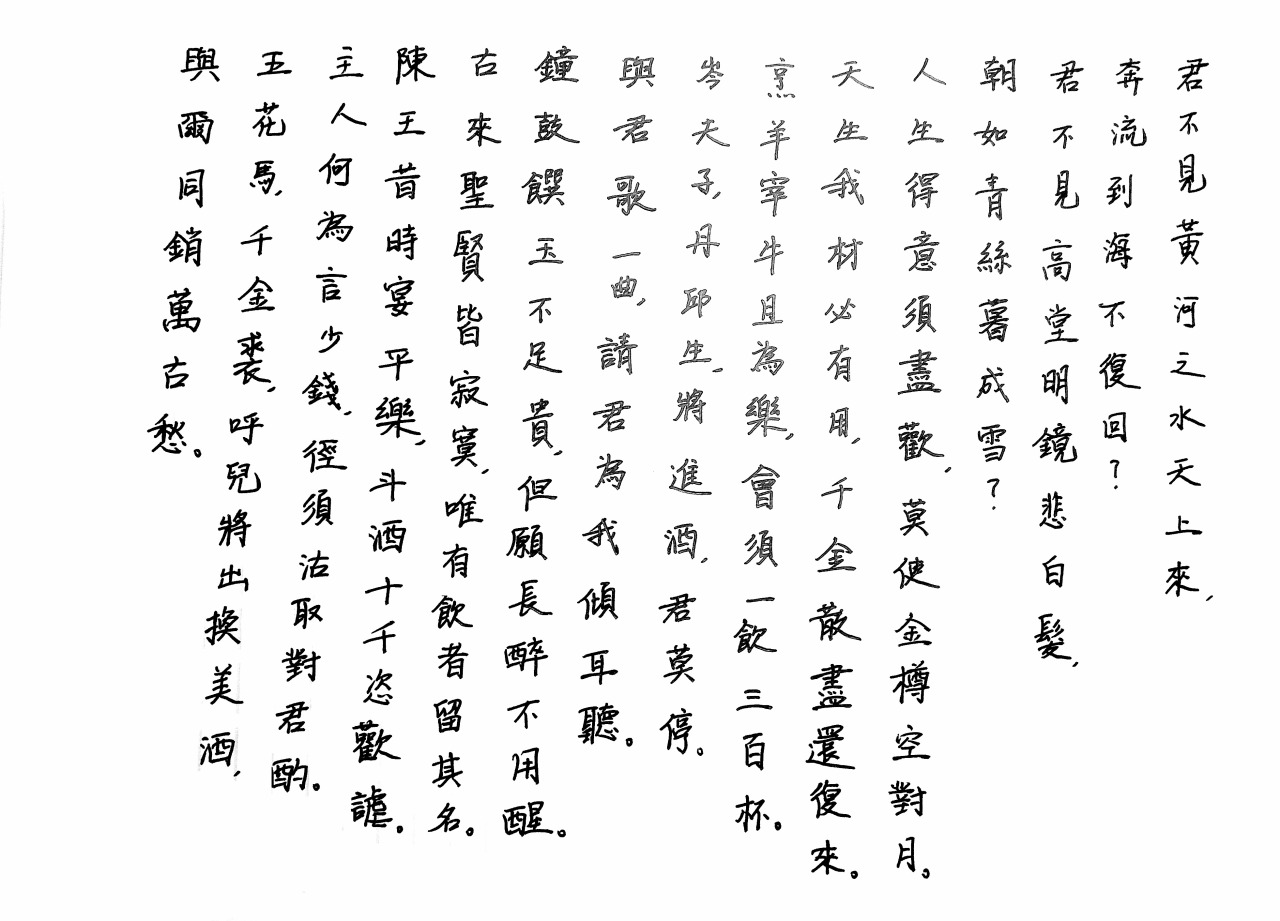 君不見黃河之水天上來,
奔流到海不復回?
君不見高堂明鏡悲白髮,
朝如青絲暮成雪?
人生得意須盡歡,莫使金樽空對月。
天生我材必有用,千金散盡還復來。
烹羊宰牛且為樂,會須一飲三百杯。
岑夫子,丹邱生,將進酒,君莫停。
與君歌一曲,請君為我傾耳聽。
鐘鼓饌玉不足貴,但願長醉不用醒。
古來聖賢皆寂寞,唯有飲者留其名。
陳王昔時宴平樂,斗酒十千恣歡謔。
主人何為言少錢,徑須沽取對君酌。
五花馬,千金裘,呼兒將出換美酒,
與爾同銷萬古愁。